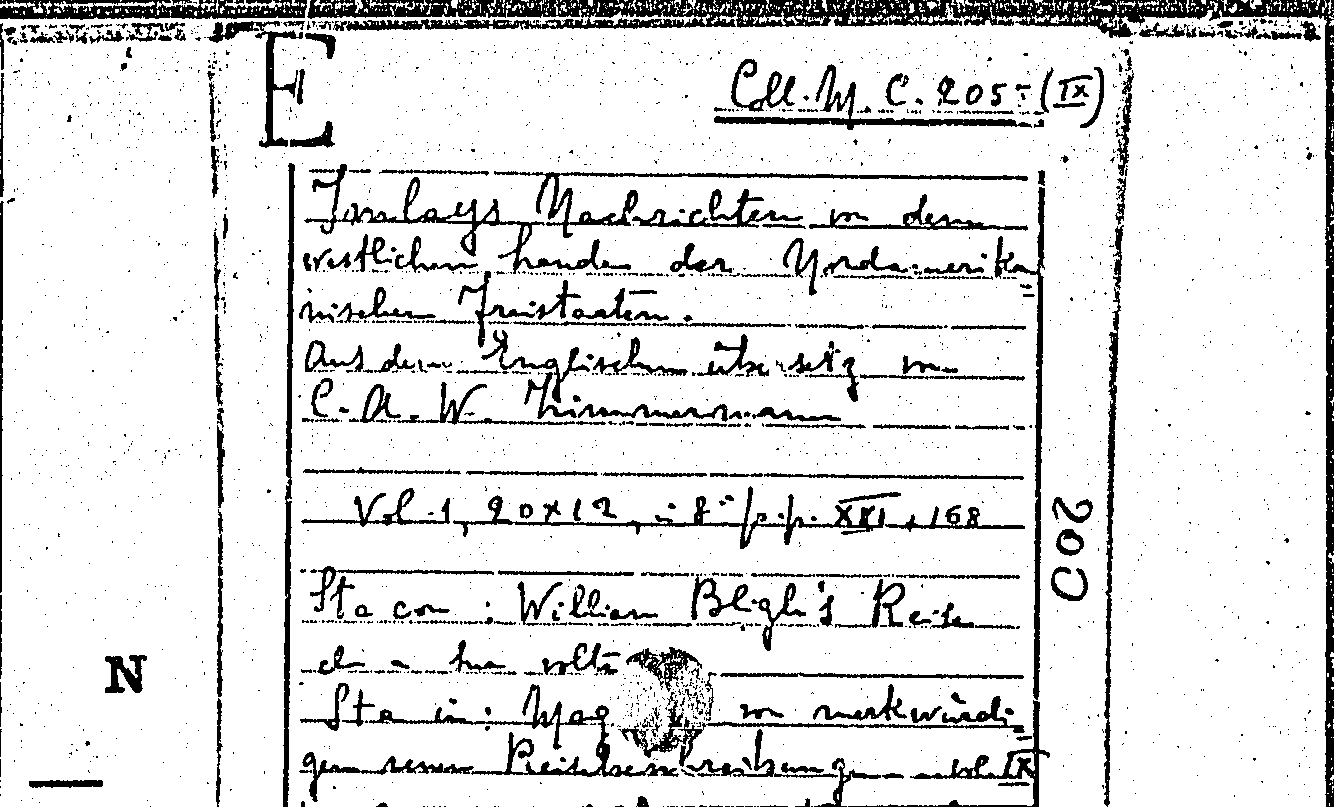 E
Coll. M. C. 205-(IX)
Imlays Nachrichten von dem
westlichen Lande der Nordamerika
nischen Freistaaten.
Aus dem Englischen übersetz von
E. A. W. Zimmermann
Vol. 1, 20×12, in 8° p.p. XXI + 168
Sta con : William Bligh's Reise
volta
Sta in : Mag von merkwürdi
gen neuen Reisebeschreibungen vol. IX
200
N